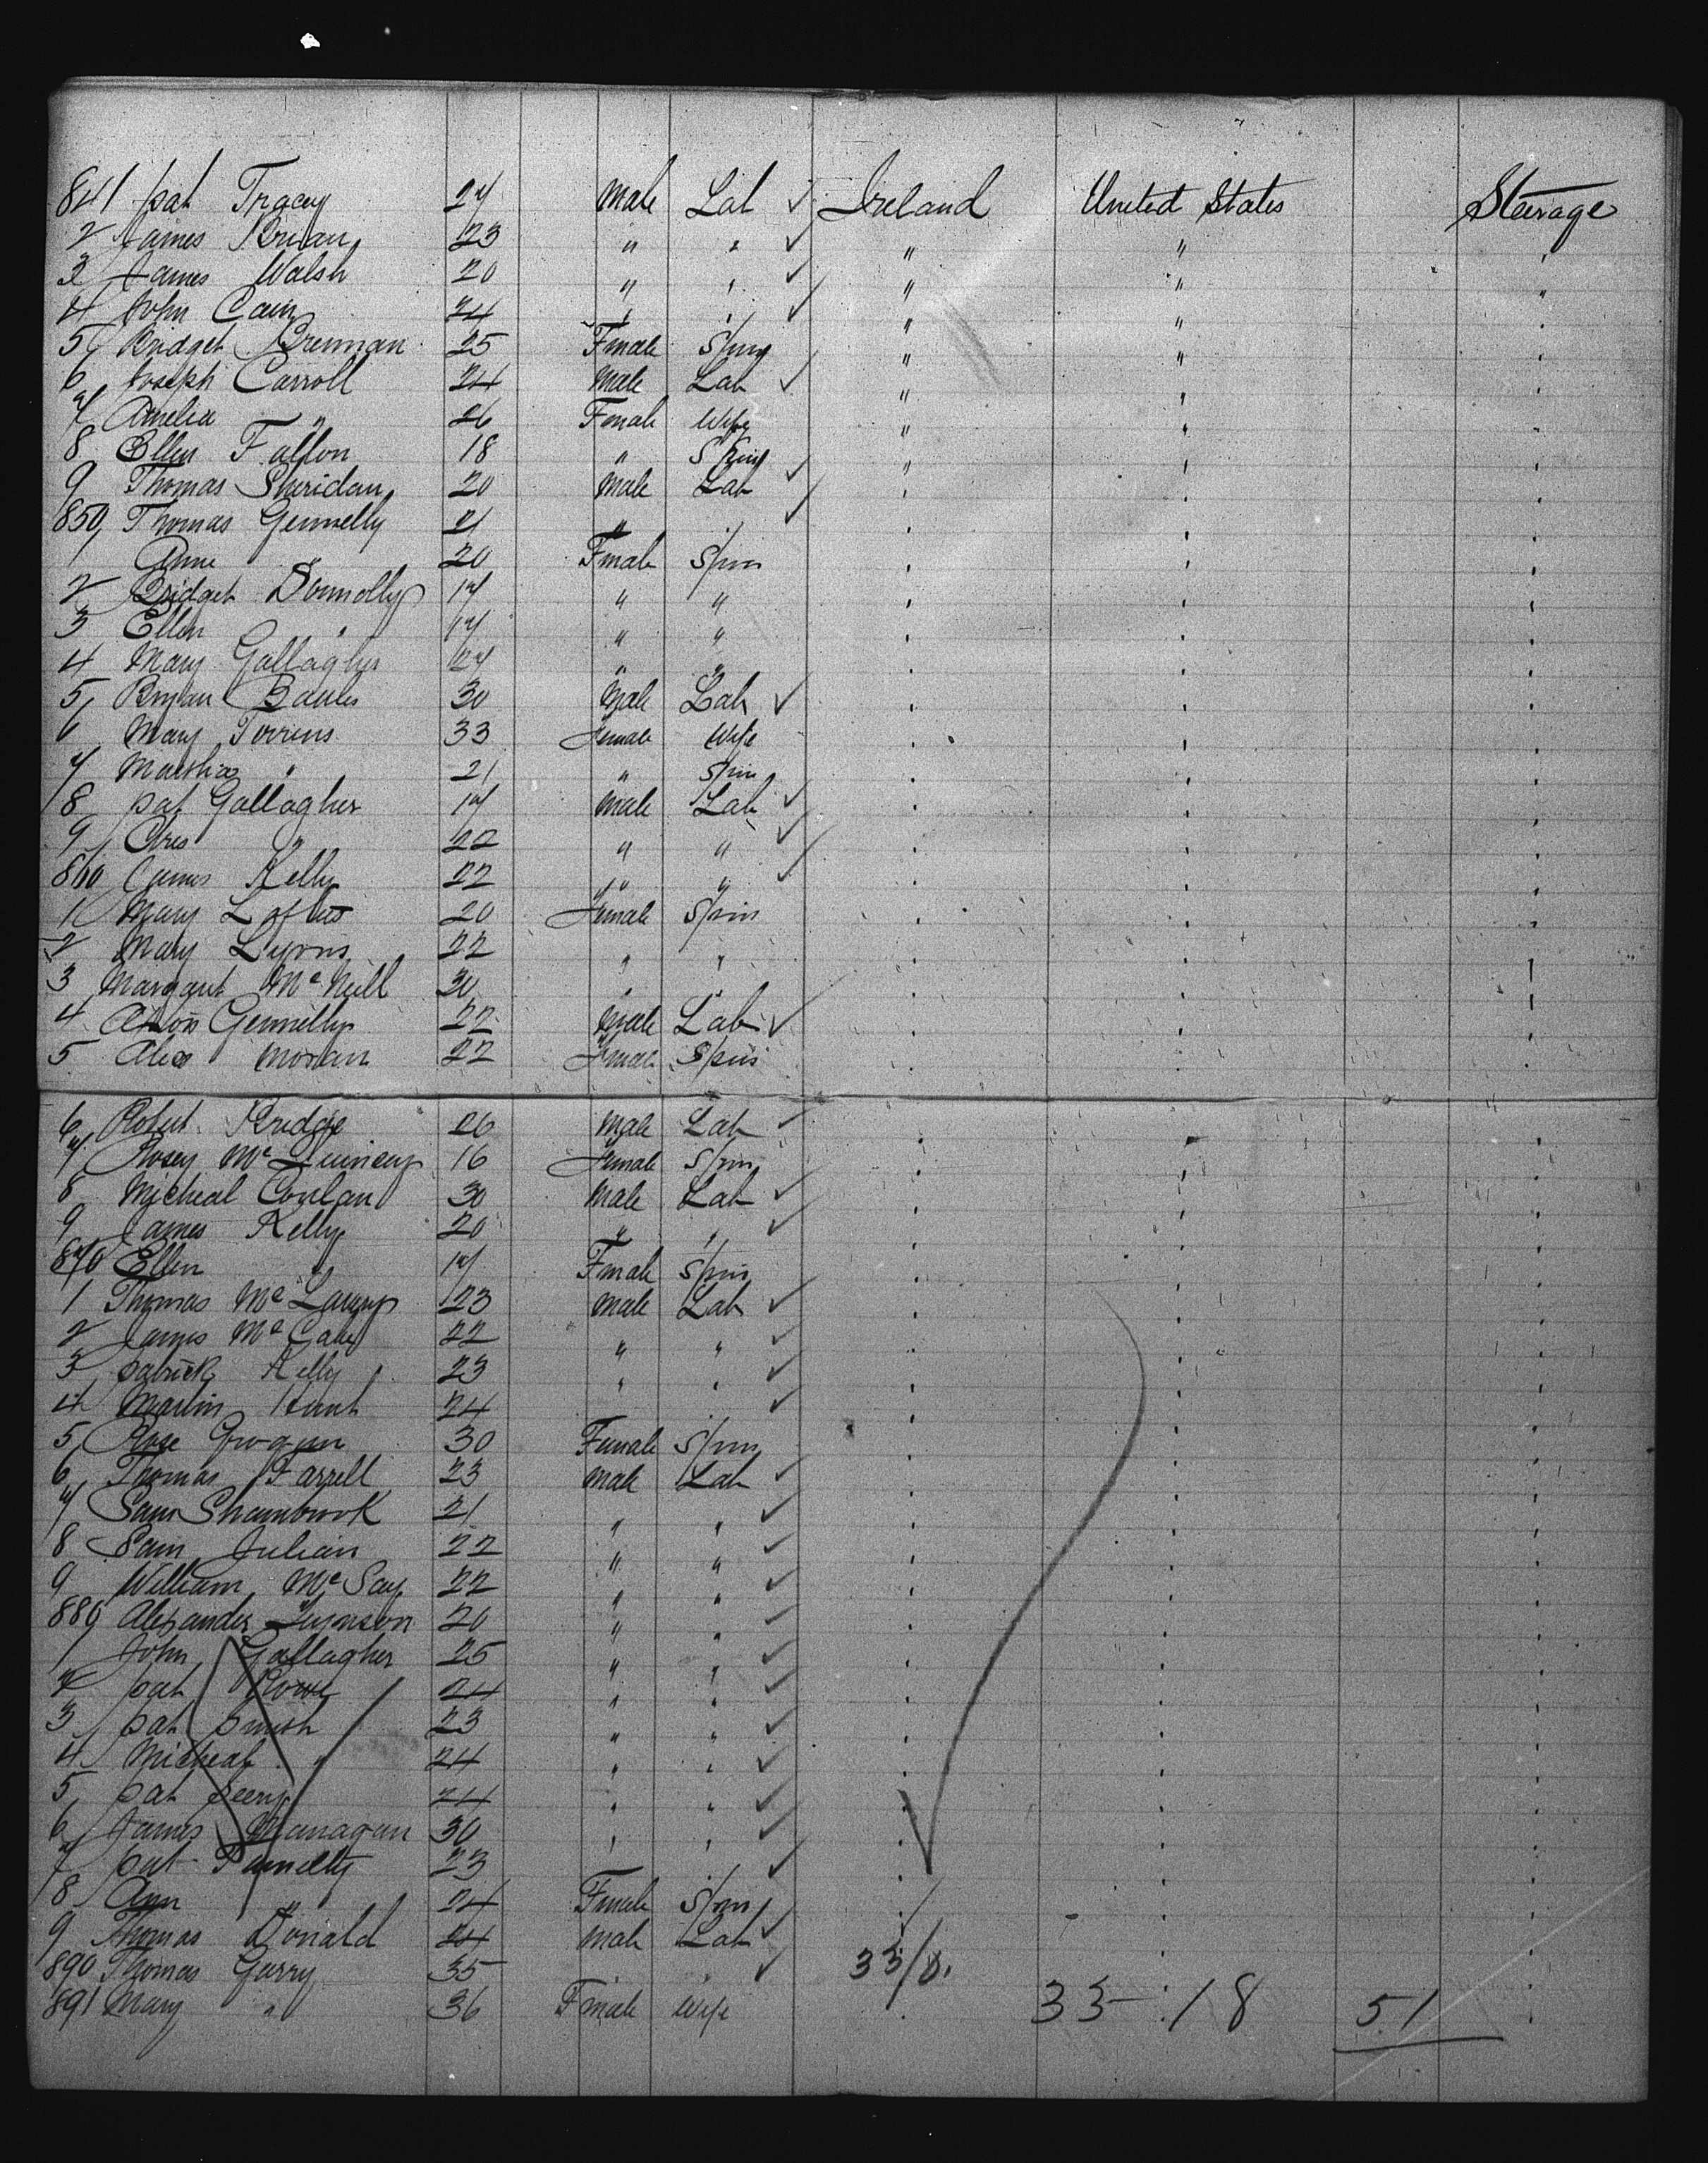 841 Pat Tracey 27 Male Lab ✓ Ireland United States Steerage
2 James 23 " " ✓ " " "
3 James Walsh 20 " " ✓ " " "
4 John Cain 24 " " ✓ " " "
5 Bridget Brennan 25 Female Sping " " "
6 Joseph Carroll 24 Male Lab ✓ " " "
7 Amelia " 26 Female Wife " " "
8 Ellen Fallon 18 " Sping " " "
9 Thomas Sheridan 20 Male Lab ✓ " " "
850 Thomas Gennelly 21 " " ✓ " " "
1 Anne " 20 Female Spin " " "
2 Bridget Donnolly 17 " " " " "
3 Ellen " 17 " " " " "
4 Mary Gallagher 27 " " " " "
5 Bryan 30 Male Lab ✓ " " "
6 Mary Torrens 33 Female Wife " " "
7 Martha " 21 " Spin " " "
8 Pat Gallagher 17 Male Lab ✓ " " "
9 " 22 " " ✓ " " "
860 James Kelly 22 " " ✓ " " "
1 Mary Loftus 20 Female Spin " " "
2 Mary Lyons 22 " " " " "
3 Margaret McNeill 30 " " " " "
4 Gennelly 22 Male Lab ✓ " " "
5 Moran 22 Female Spin " " "
6 Robert 26 Male Lab ✓ " " "
7 Rosey 16 Female Spin " " "
8 Micheal Conlan 30 Male Lab ✓ " " "
9 James Kelly 20 " " ✓ " " "
870 Ellen " 17 Female Spin " " "
1 Thomas 23 Male Lab ✓ " " "
2 James McCabe 22 " " ✓ " " "
3 Patrick Kelly 23 " " ✓ " " "
4 Martin Hunt 24 " " ✓ " " "
5 Rose Grogan 30 Female Spin " " "
6 Thomas Farrell 23 Male Lab ✓ " " "
7 Sam Shambrook 21 " " ✓ " " "
8 Sam Julian 22 " " ✓ " " "
9 William McSay 22 " " ✓ " " "
880 Alexander 20 " " ✓ " " "
1 John Gallagher 25 " " ✓ " " "
2 Pat Rowe 24 " " ✓ " " "
3 Pat 23 " " ✓ " " "
4 Micheal " 24 " " ✓ " " "
5 Pat 24 " " ✓ " " "
6 James 30 " " ✓ " " "
7 Pat 23 " " ✓ " " "
8 Ann " 24 Female Spin " " "
9 Thomas Donald 24 Male Lab ✓ " " "
890 Thomas Garry 35 " " ✓ 33/8. " "
891 Mary " 36 Female Wife 33 18 51 "